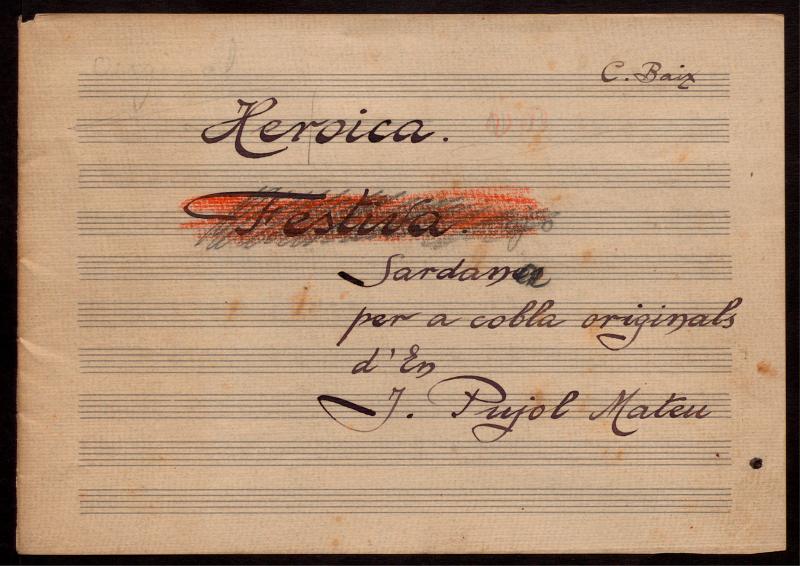 C. Baix
Heroica.
Festiva.
Sardana
per a cobla originals
d'En
J. Pujol Mateu